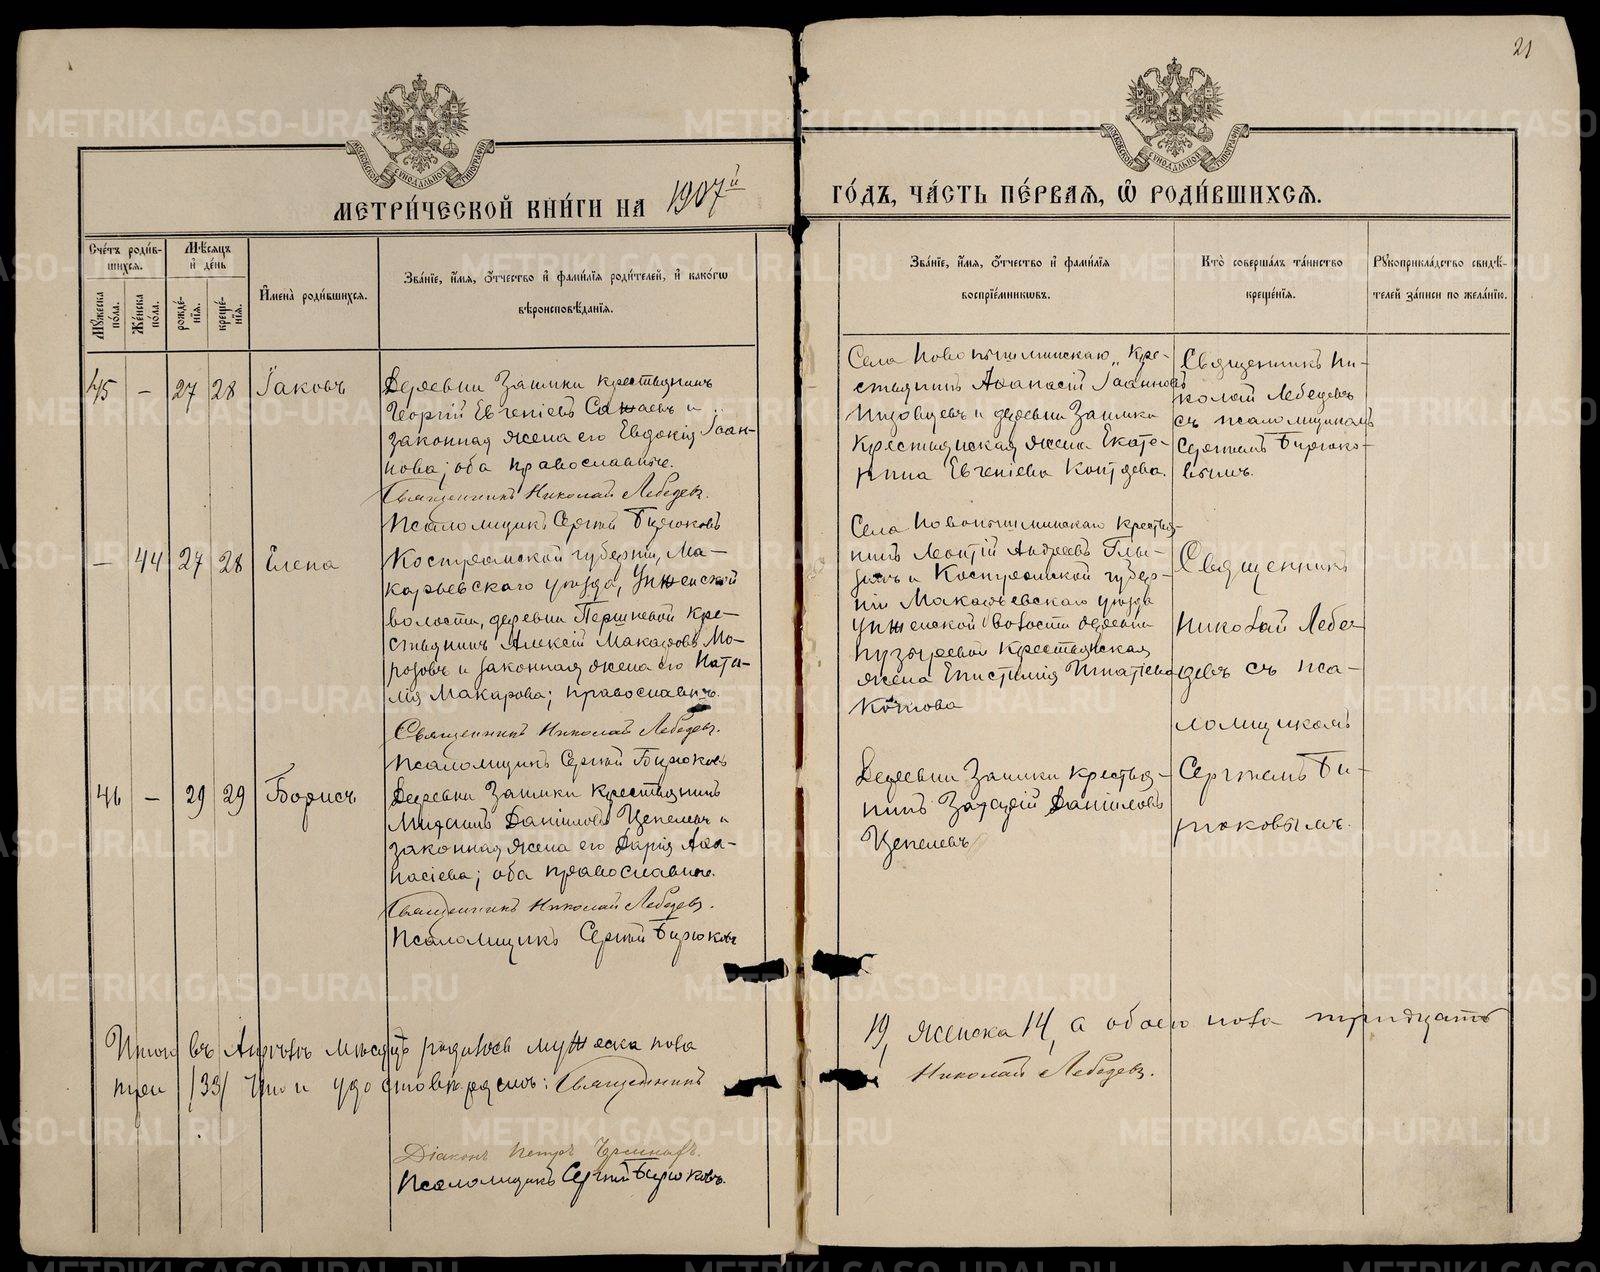 21
МЕТРИ́ЧЕСКОЙ КНИ́ГИ НА 1907й
ГО́ДЪ, ЧА́СТЬ ПЕ́РВАЯ, Ѡ РОДИ́ВШИХСЯ.
МОСКОВСКОЙ СѴНОДАЛЬНОЙ ТИПОГРАФІИ
МОСКОВСКОЙ СѴНОДАЛЬНОЙ ТИПОГРАФІИ
Сче́тъ роди́в-
шихся.
Мꙋжеска по́ла.
Же́нска по́ла.
Мѣ́сяцъ
и҆ де́нь
рожде́-
нїѧ.
креще́-
нїѧ.
И҆мена̀ роди́вшихся.
Зва́нїе, и҆́мѧ, ѻ҆́тчество и҆ фами́лїѧ роди́телей, и҆ како́гѡ
вѣроисповѣ́данїѧ.
Зва́нїе, и҆́мѧ, ѻ҆́тчество и҆ фами́лїѧ
воспрїе́мникѡвъ.
Кто̀ соверша́лъ та́инство
креще́нїѧ.
Рꙋкоприкла́дство свидѣ́-
телей за́писи по жела́нїю.
45 — 27 28 Іаковъ
Деревни Заимки крестьянинъ
Георгій Евгеніевъ и
законная жена его Евдокія Іоан-
нова; оба православные.
Священникъ Николай Лебедевъ.
Псаломщикъ Сергій Бирюковъ
Села Новопышминскаго кре-
стьянинъ Аѳанасій Іоанновъ
Низовцевъ и деревни Заимки
крестьянская жена Екате-
рина Евгеніева
Священникъ Ни-
колай Лебедевъ
съ псаломщикомъ
Сергіемъ Бирюко-
вымъ.
— 44 27 28 Елена
Костромской губерніи, Ма-
карьевскаго уѣзда, Унженской
волости, деревни Першневой кре-
стьянинъ Алексій Макаровъ Мо-
розовъ и законная жена его Ната-
лія Макарова; православн.
Священникъ Николай Лебедевъ.
Псаломщикъ Сергій Бирюковъ
Села Новопышминскаго крестья-
нинъ Леонтій Андреевъ
и Костромской губер-
ніи Макарьевскаго уѣзда
Унженской волости деревни
Пузыревой крестьянская
жена Епистимія Игнатіева
Священникъ
Николай Лебе-
девъ съ пса-
ломщикомъ
Сергіемъ Би-
рюковымъ.
46 — 29 29 Борисъ
Деревни Заимки крестьянинъ
Даніиловъ Цепелевъ и
законная жена его Дарія Аѳа-
насіева; оба православные.
Священникъ Николай Лебедевъ.
Псаломщикъ Сергій Бирюковъ
Деревни Заимки крестья-
нинъ Даніиловъ
Цепелевъ
Итого въ Апрѣлѣ мѣсяцѣ родилось мужеска пола
19, женска 14, а обоего пола тридцать
три /33/ что и удостовѣряемъ: Священникъ
Николай Лебедевъ.
Діаконъ Петръ
Псаломщикъ Сергій Бирюковъ.
METRIKI.GASO-URAL.RU